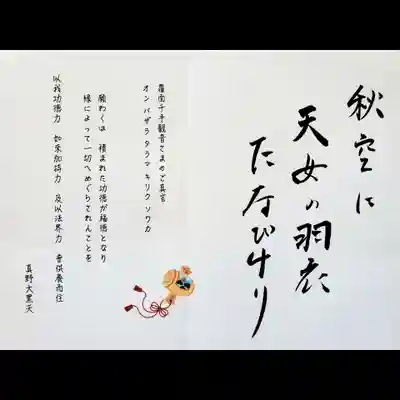 秋空に
天女の羽衣
たなびけり
露面千手観音さまのご真言
オン バザラ タラマ キリク ソワカ
願わくは 積まれた功徳が福徳となり
縁によって一切へめぐらされんことを
以我功徳力 如来加持力 及以法界力 普供養而住
真野大黒天